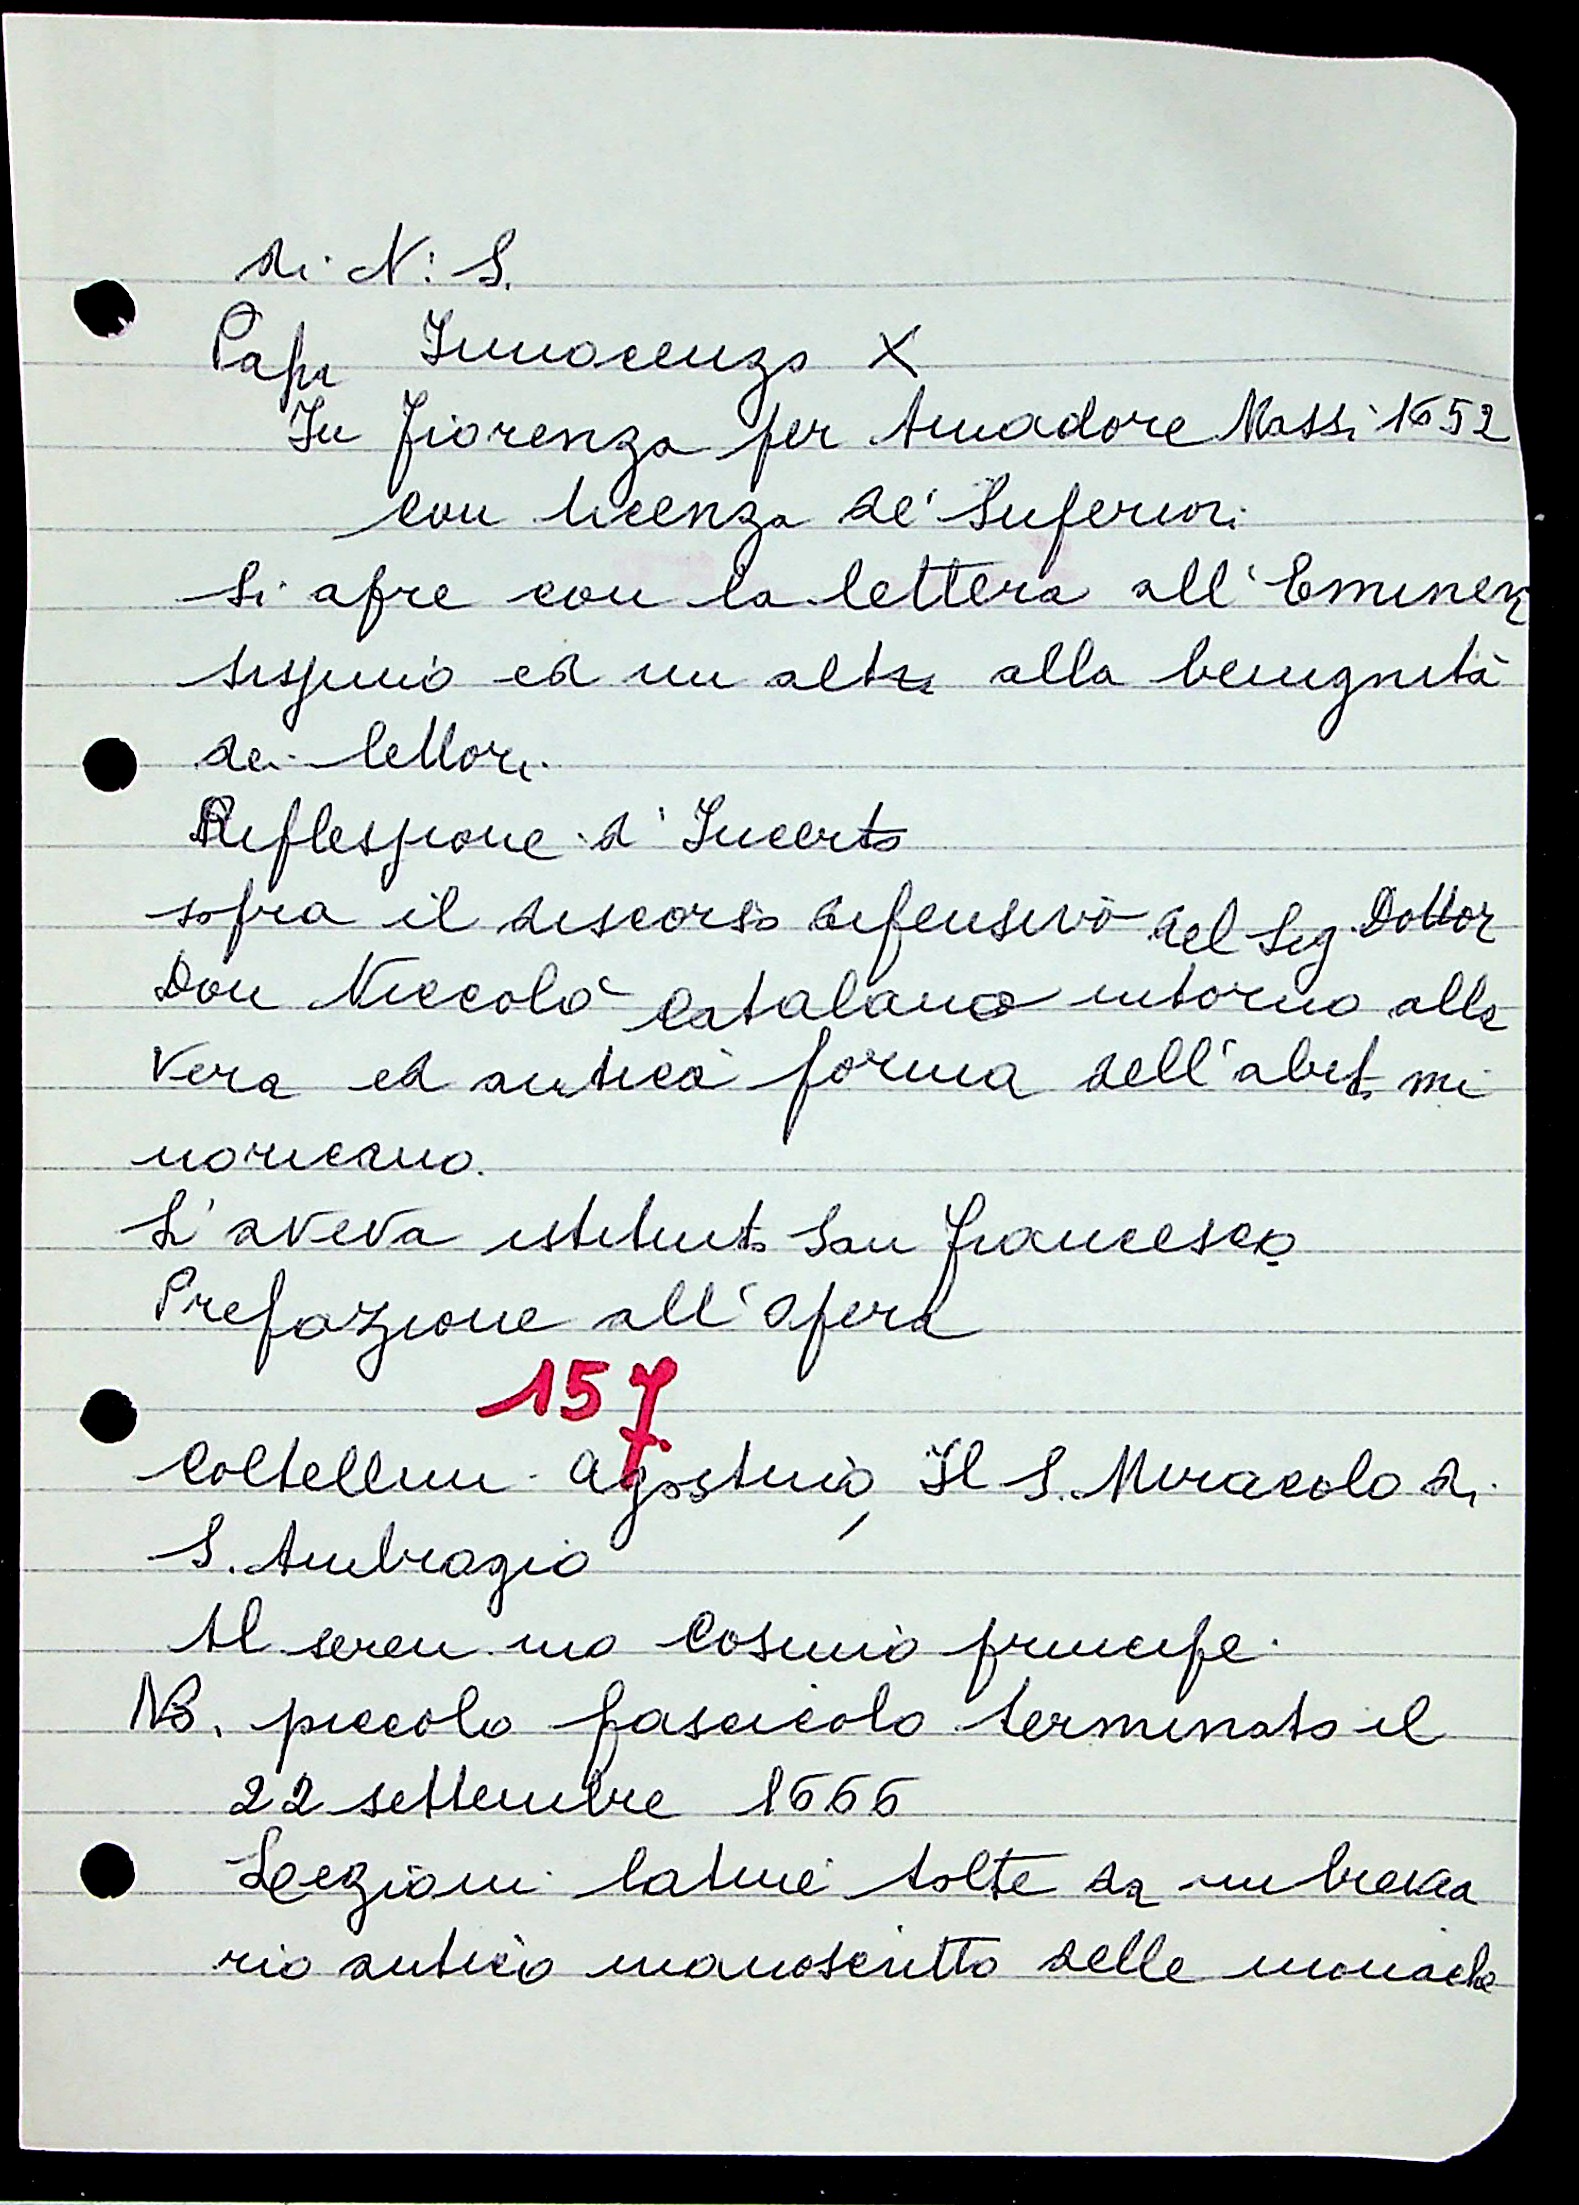 di N: S.
Papa Innocenzo X
In Fiorenza per Amadore Massi 1652
con licenza de' Superiori
Si apre con la lettera all' Eminen
tissimo ed un altra alla benignità
dei lettori.
Riflessione d' Incerto
sopra il discorso difensivo del Sig. Dottor
Don Niccolò Catalano intorno alla
vera ed antica forma dell'abito mi
noricano.
L'aveva istituito San Francesco
Prefazione all'opera
157
Coltellini Agostino, Il S. Miracolo di
S. Ambrogio
Al seren mo Cosimo principe.
NB. piccolo fascicolo terminato il
22 settembre 1666
Lezioni latine tolte da un brevia
rio antico manoscritto delle monache